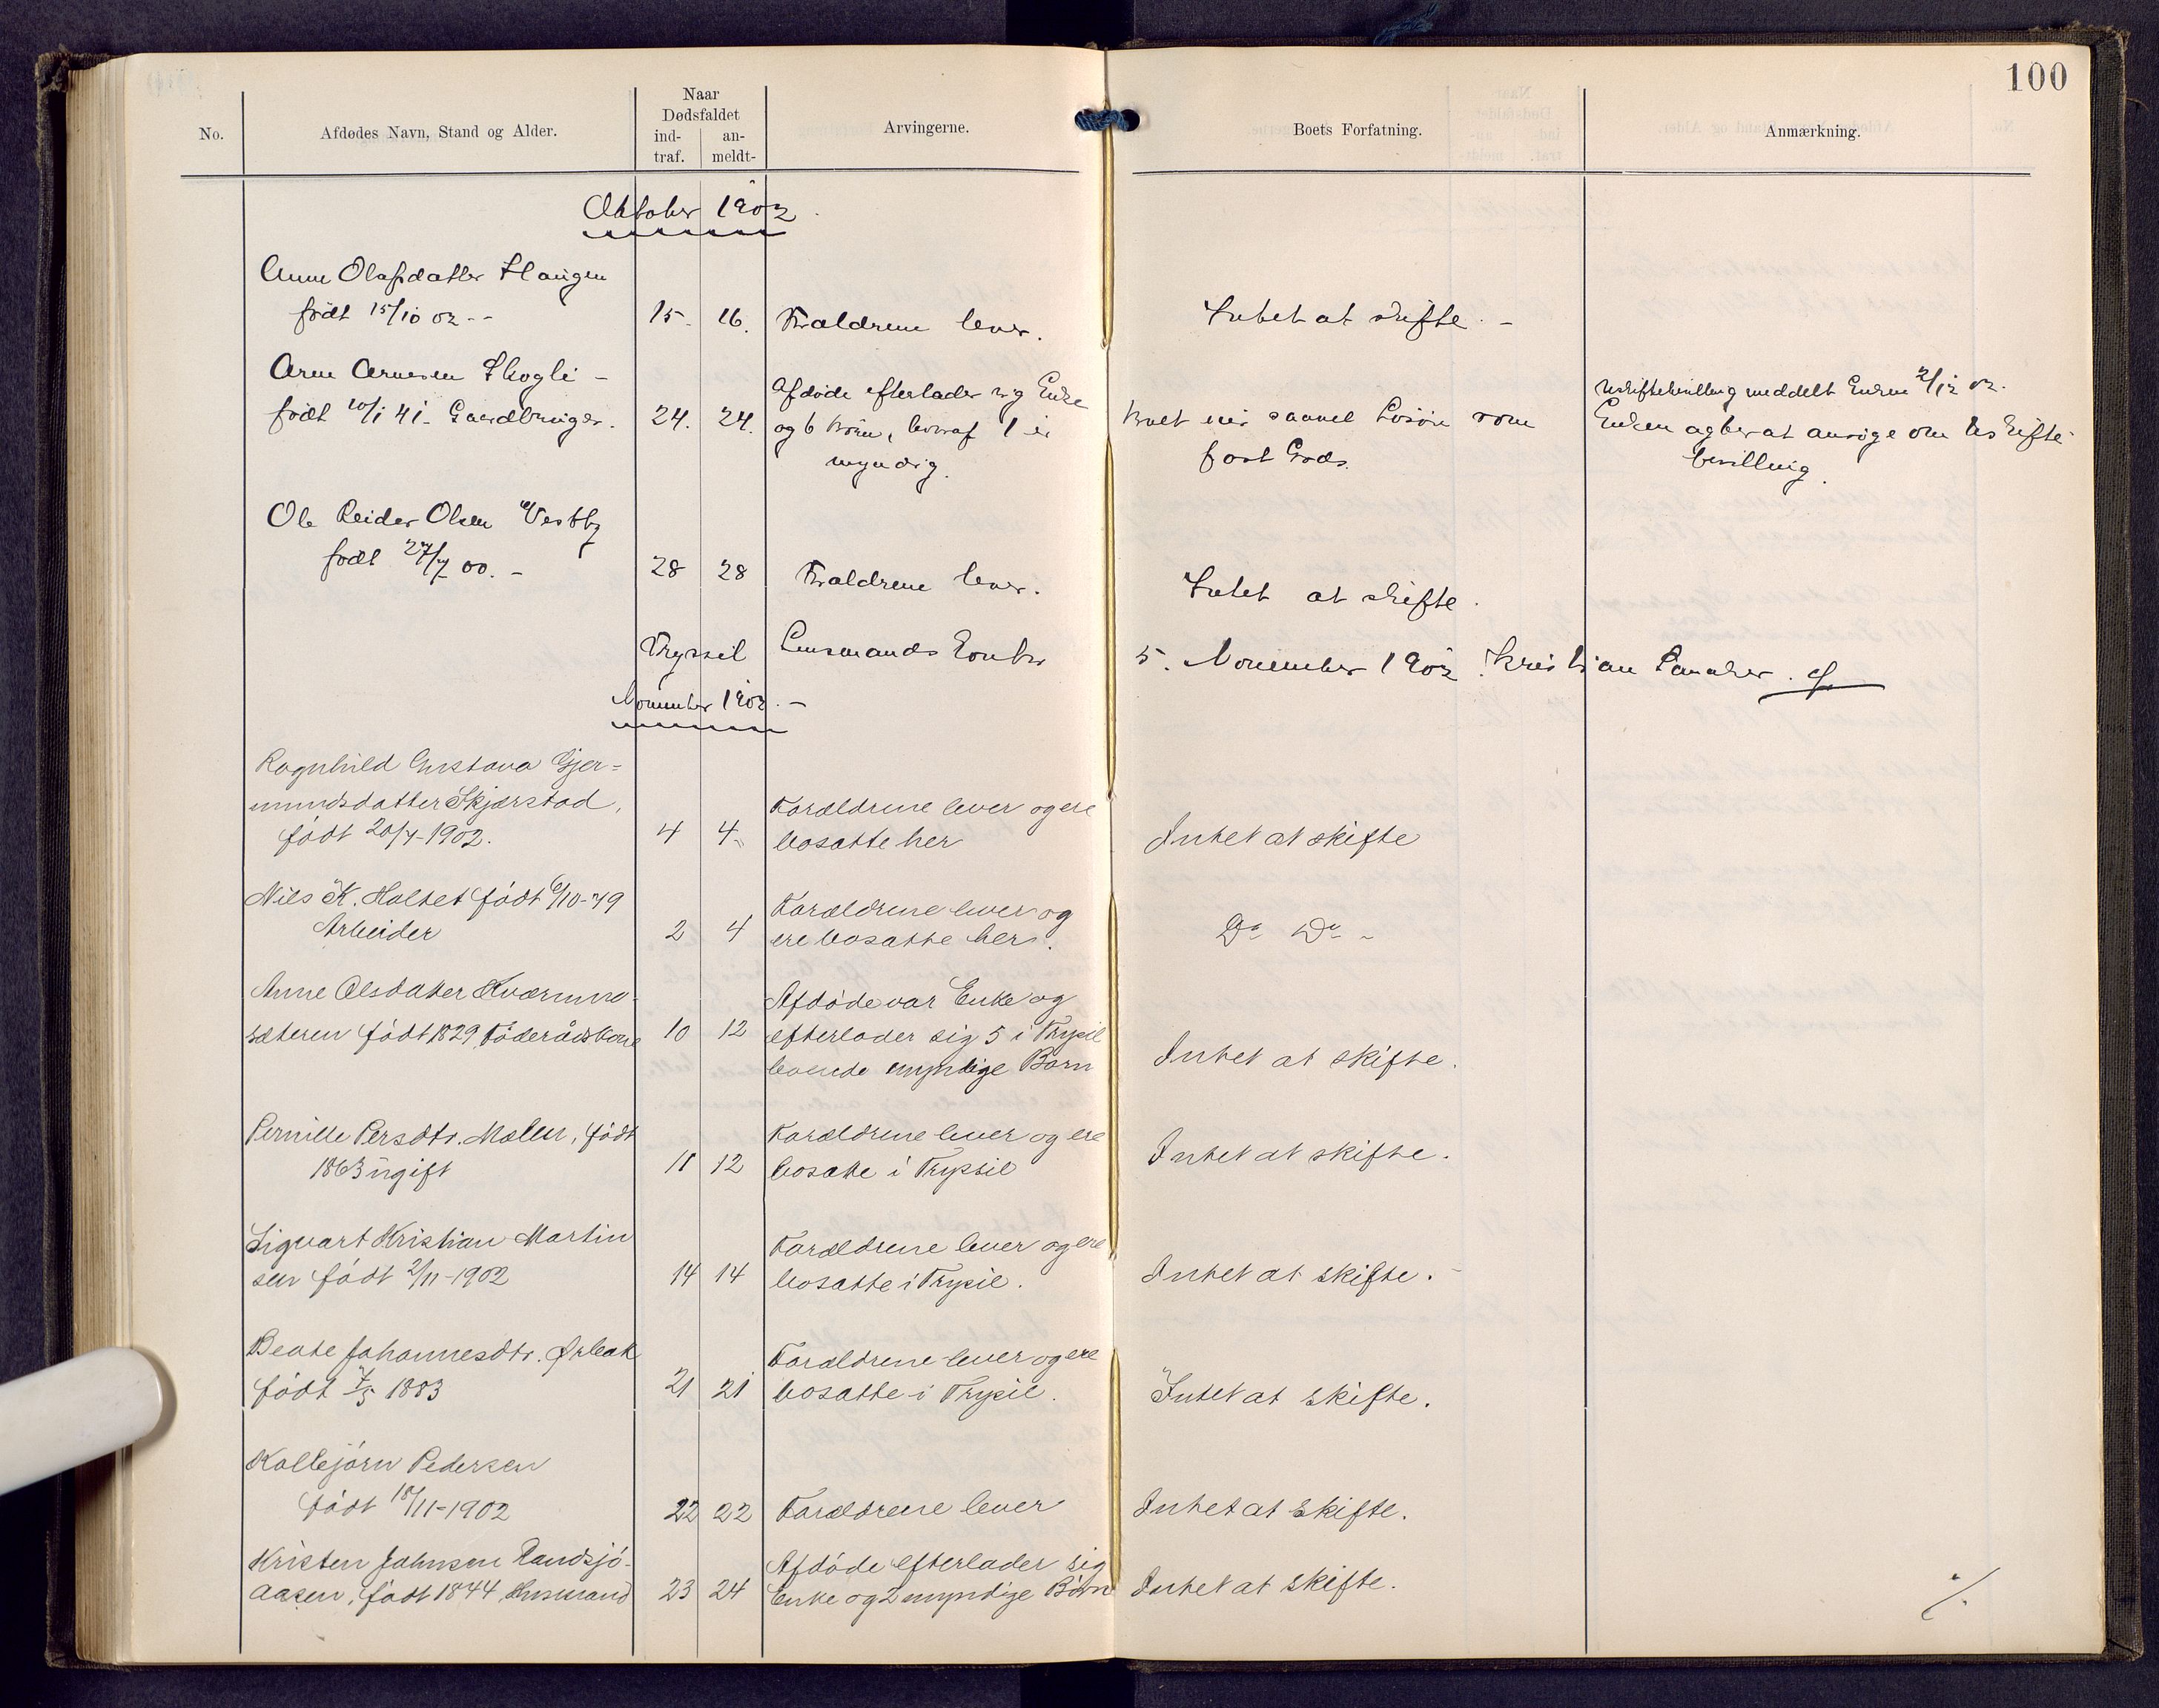 100
No.
Afdødes Navn, Stand og Alder.
Naar
Dødsfaldet
ind-
traf.
an-
meldt-
Arvingerne.
Boets Forfatning.
Anmærkning.
Oktober 1902.
Anne Olafsdatter Haugen
født 15/10 02 - -
15. 16. Forældrene lever.
Intet at skifte. -
Arne Arnesen Skogli -
født 10/1 41. Gaardbruger.
24. 24.
Afdøde efterlader sig Enke
og 6 Børn, hvoraf 1 er
myndig.
Boet eier saavel Løsøre som
fast Gods.
Uskiftebevilling meddelt Enken 2/12 02.
Enken agter at ansøge om Uskifte-
bevilling.
Ole Reidar Olsen Vestby
født 27/7 00. -
28 28 Forældrene lever.
Intet at skifte.
Trysil Lensmands Kontor 5. November 1902. Kristian
November 1902. -
Ragnhild Gustava Gjer=
mundsdatter Skjærstad,
født 20/4-1902.
4 4
Forældrene lever og ere
bosatte her
Intet at skifte
Nils K. Holtet født 6/10-79
Arbeider
2 4
Forældrene lever og
ere bosatte her.
Do Do -
Anne Olsdatter Kværnmo-
sæteren født 1829 Føderådskone
10 12
Afdøde var Enke og
efterlader sig 5 i Trysil
boende myndige Børn
Intet at skifte.
Pernille Persdtr. Moleu, født
1863 ugift
11 12
Forældrene lever og ere
bosatte i Trysil
Intet at skifte.
Sigvart Kristian Martin
sen født 2/11-1902
14 14
Forældrene lever og ere
bosatte i Trysil.
Intet at skifte.
Beate Johannesdtr. Ørbak
født 7/5 1883
21 21
Forældrene lever og ere
bosatte i Trysil.
Intet at skifte.
Kolbjørn Pedersen
født 18/11-1902
22 22 Forældrene lever
Intet at skifte.
Kristen Johnsen Rundsjø-
aasen, født 1844 Husmand
23 24
Afdøde efterlader sig
Enke og 2 myndige Børn
Intet at skifte.